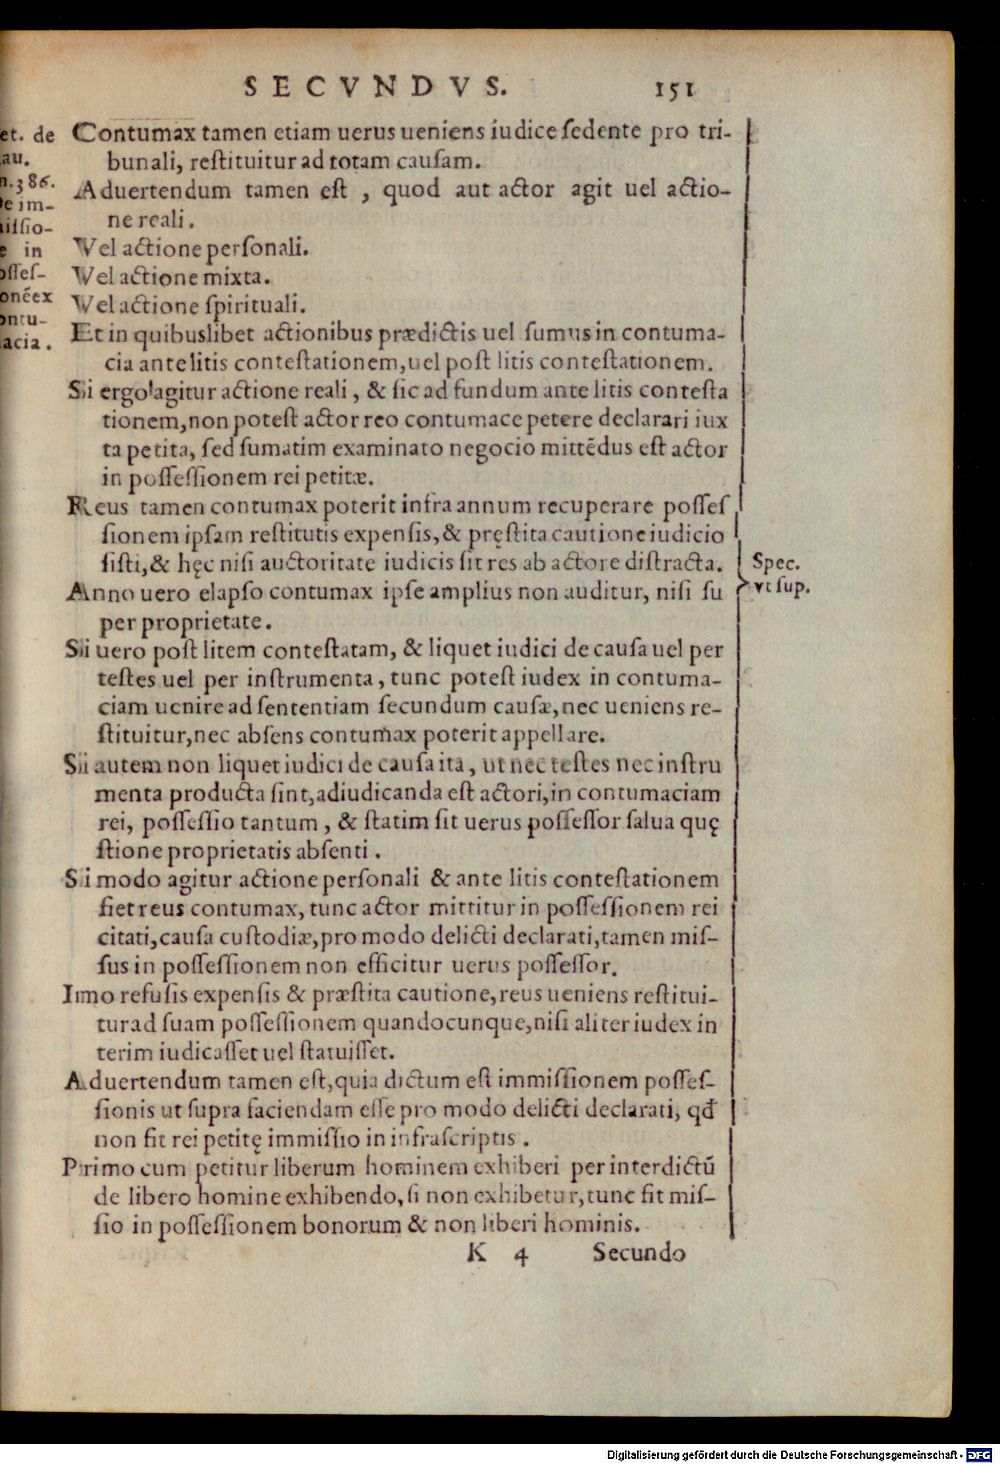 SECVNDVS. 151
Contumax tamen etiam uerus ueniens iudice sedente pro tri-
bunali, restituitur ad totam causam.
Aduertendum tamen est, quod aut actor agit uel actio-
ne reali.
Vel actione personali.
Vel actione mixta.
Vel actione spirituali.
Et in quibuslibet actionibus prædictis uel sumus in contuma-
cia ante litis contestationem, uel post litis contestationem.
Si ergo agitur actione reali, & sic ad fundum ante litis contesta
tionem, non potest actor reo contumace petere declarari iux
ta petita, sed sumatim examinato negocio mittẽdus est actor
in possessionem rei petitæ.
Reus tamen contumax poterit infra annum recuperare posses
sionem ipsam restitutis expensis, & pręstita cautione iudicio
sisti, & hęc nisi auctoritate iudicis sit res ab actore distracta.
Anno uero elapso contumax ipse amplius non auditur, nisi su
per proprietate.
Si uero post litem contestatam, & liquet iudici de causa uel per
testes uel per instrumenta, tunc potest iudex in contuma-
ciam uenire ad sententiam secundum causæ, nec ueniens re-
stituitur, nec absens contumax poterit appellare.
Si autem non liquet iudici de causa ita, ut nec testes nec instru
menta producta sint, adiudicanda est actori, in contumaciam
rei, possessio tantum, & statim sit uerus possessor salua quę
stione proprietatis absenti.
Si modo agitur actione personali & ante litis contestationem
fiet reus contumax, tunc actor mittitur in possessionem rei
citati, causa custodiæ, pro modo delicti declarati, tamen mis-
sus in possessionem non efficitur uerus possessor.
Imo refusis expensis & præstita cautione, reus ueniens restitui-
tur ad suam possessionem quandocunque, nisi aliter iudex in
terim iudicasset uel statuisset.
Aduertendum tamen est, quia dictum est immissionem posses-
sionis ut supra faciendam esse pro modo delicti declarati, qđ
non fit rei petitę immissio in infrascriptis.
Primo cum petitur liberum hominem exhiberi per interdictũ
de libero homine exhibendo, si non exhibetur, tunc fit mis-
sio in possessionem bonorum & non liberi hominis.
K 4 Secundo
Spec.
vt sup.
et. de
au.
n. 386.
e im-
issio-
e in
osses-
onẽ ex
ontu-
acia.
Digitalisierung gefördert durch die Deutsche Forschungsgemeinschaft - DFG